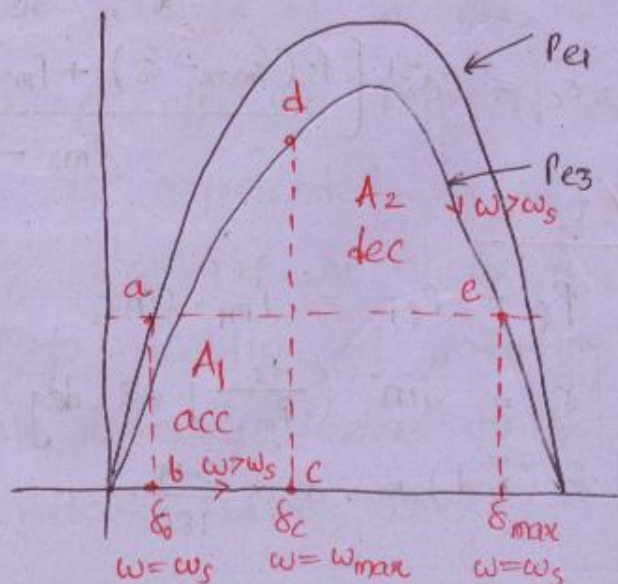 Pe1
d
Pe3
A2
ω>ωs
dec
a
e
A1
acc
b ω>ωs c
δ0 δc δmax
ω=ωs ω=ωmax ω=ωs